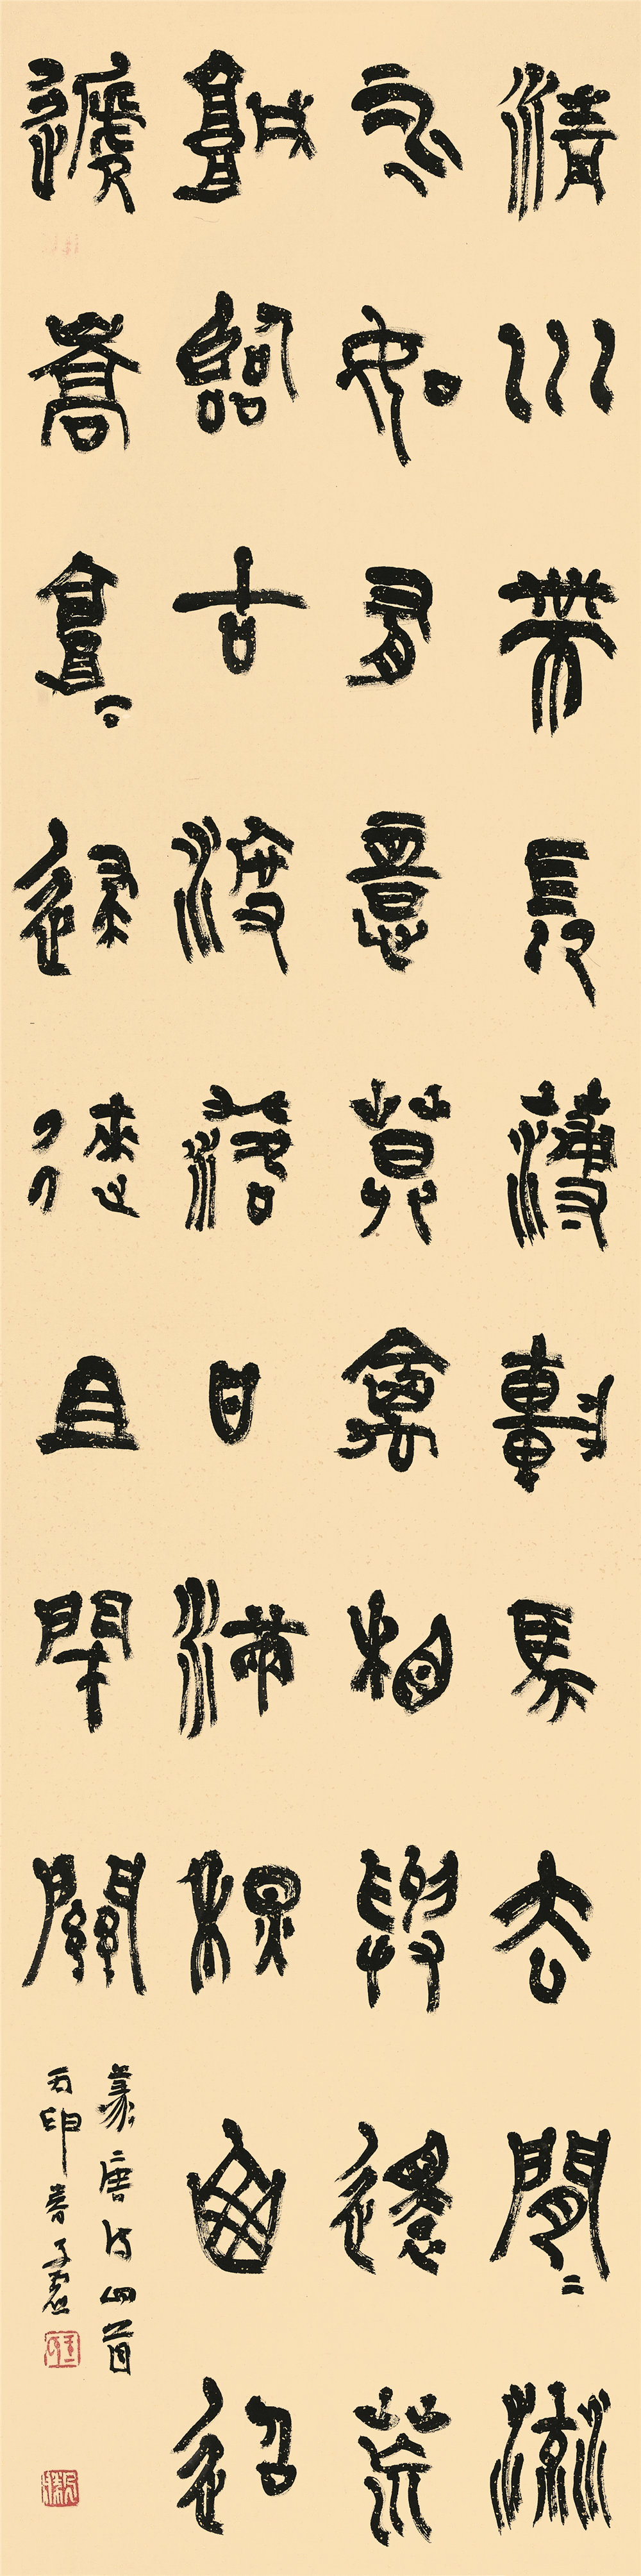 清川帶長薄車馬去閒〻流
水如有意暮禽相與還荒
城臨古渡落日滿秋山迢
遞嵩高下歸來且閉關
篆唐诗四首
丙申春